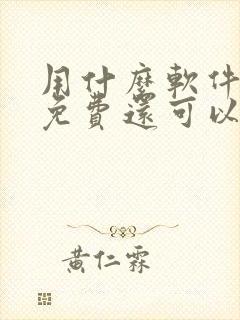 用什麼軟件
免費還可以
黃仁霖